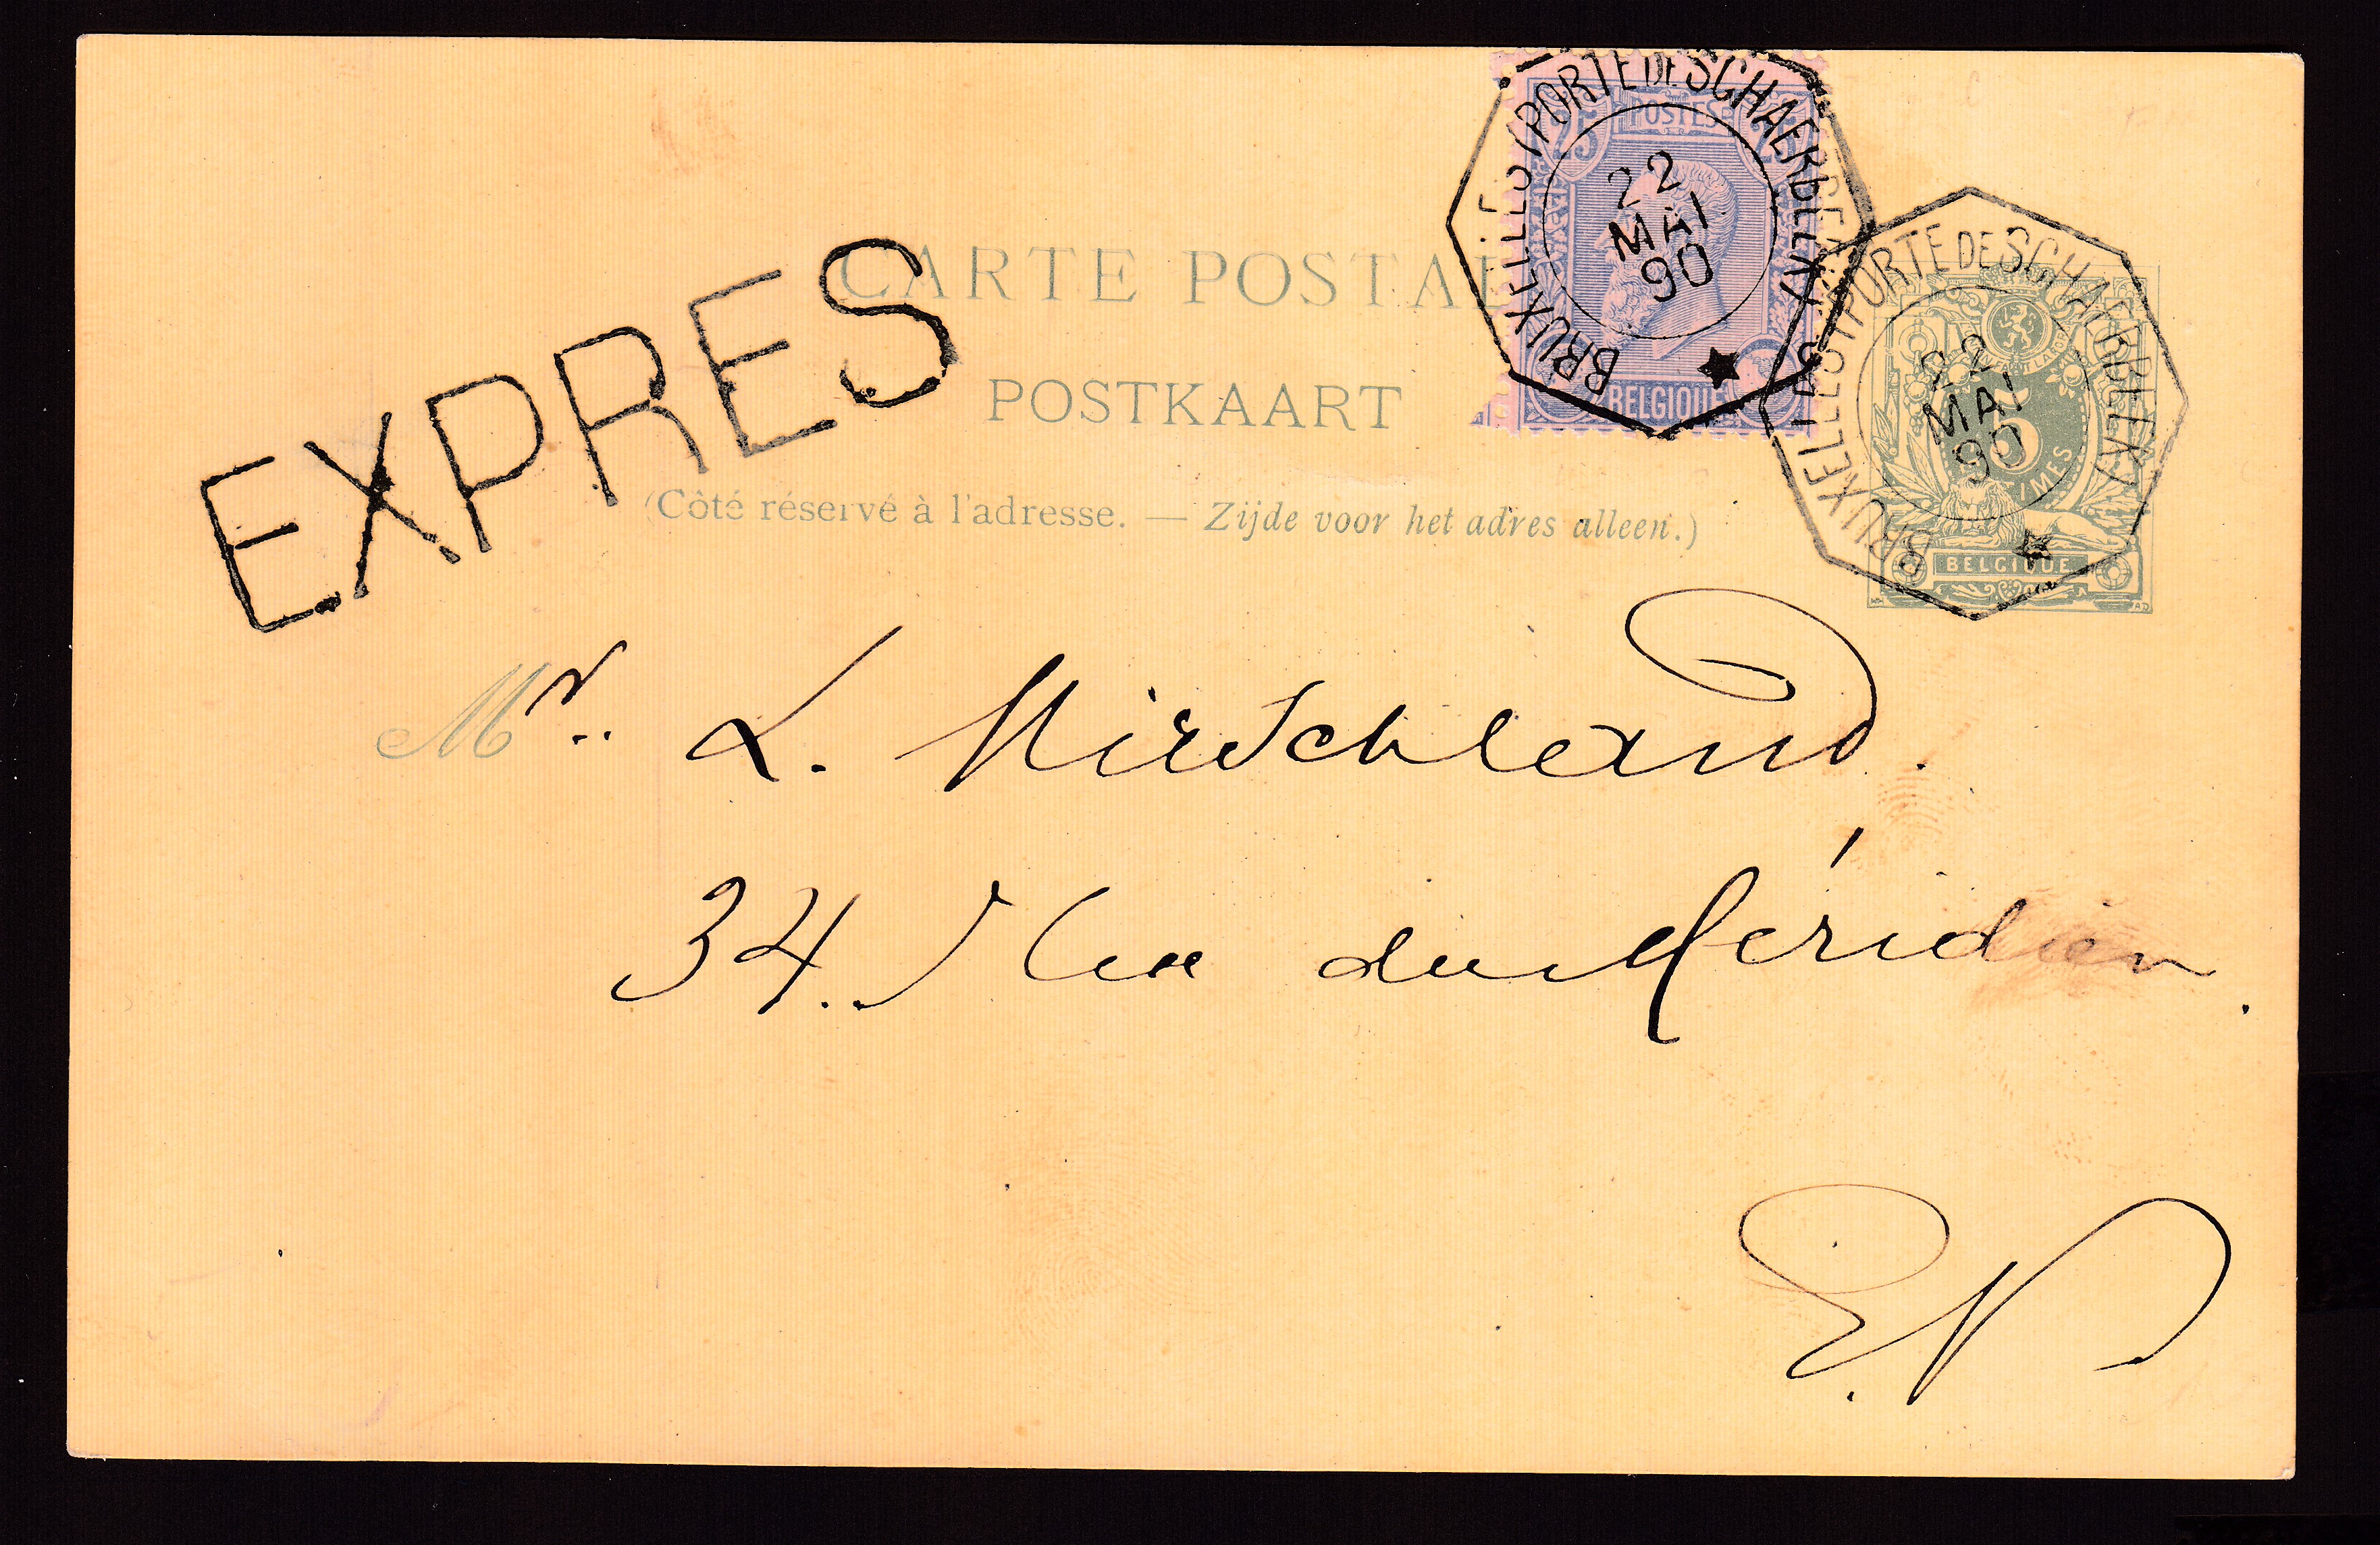 BRUXELLES (PORTE DE SCHAERBEEK)
22
MAI
90
25 POSTES 25
BELGIQUE
BRUXELLES (PORTE DE SCHAERBEEK)
22
MAI
90
5
BELGIQUE
EXPRES
CARTE POSTAL
POSTKAART
(Côté réservé à l'adresse. — Zijde voor het adres alleen.)
Mr. L. Hirschland.
34. Rue du Méridien.
E.V